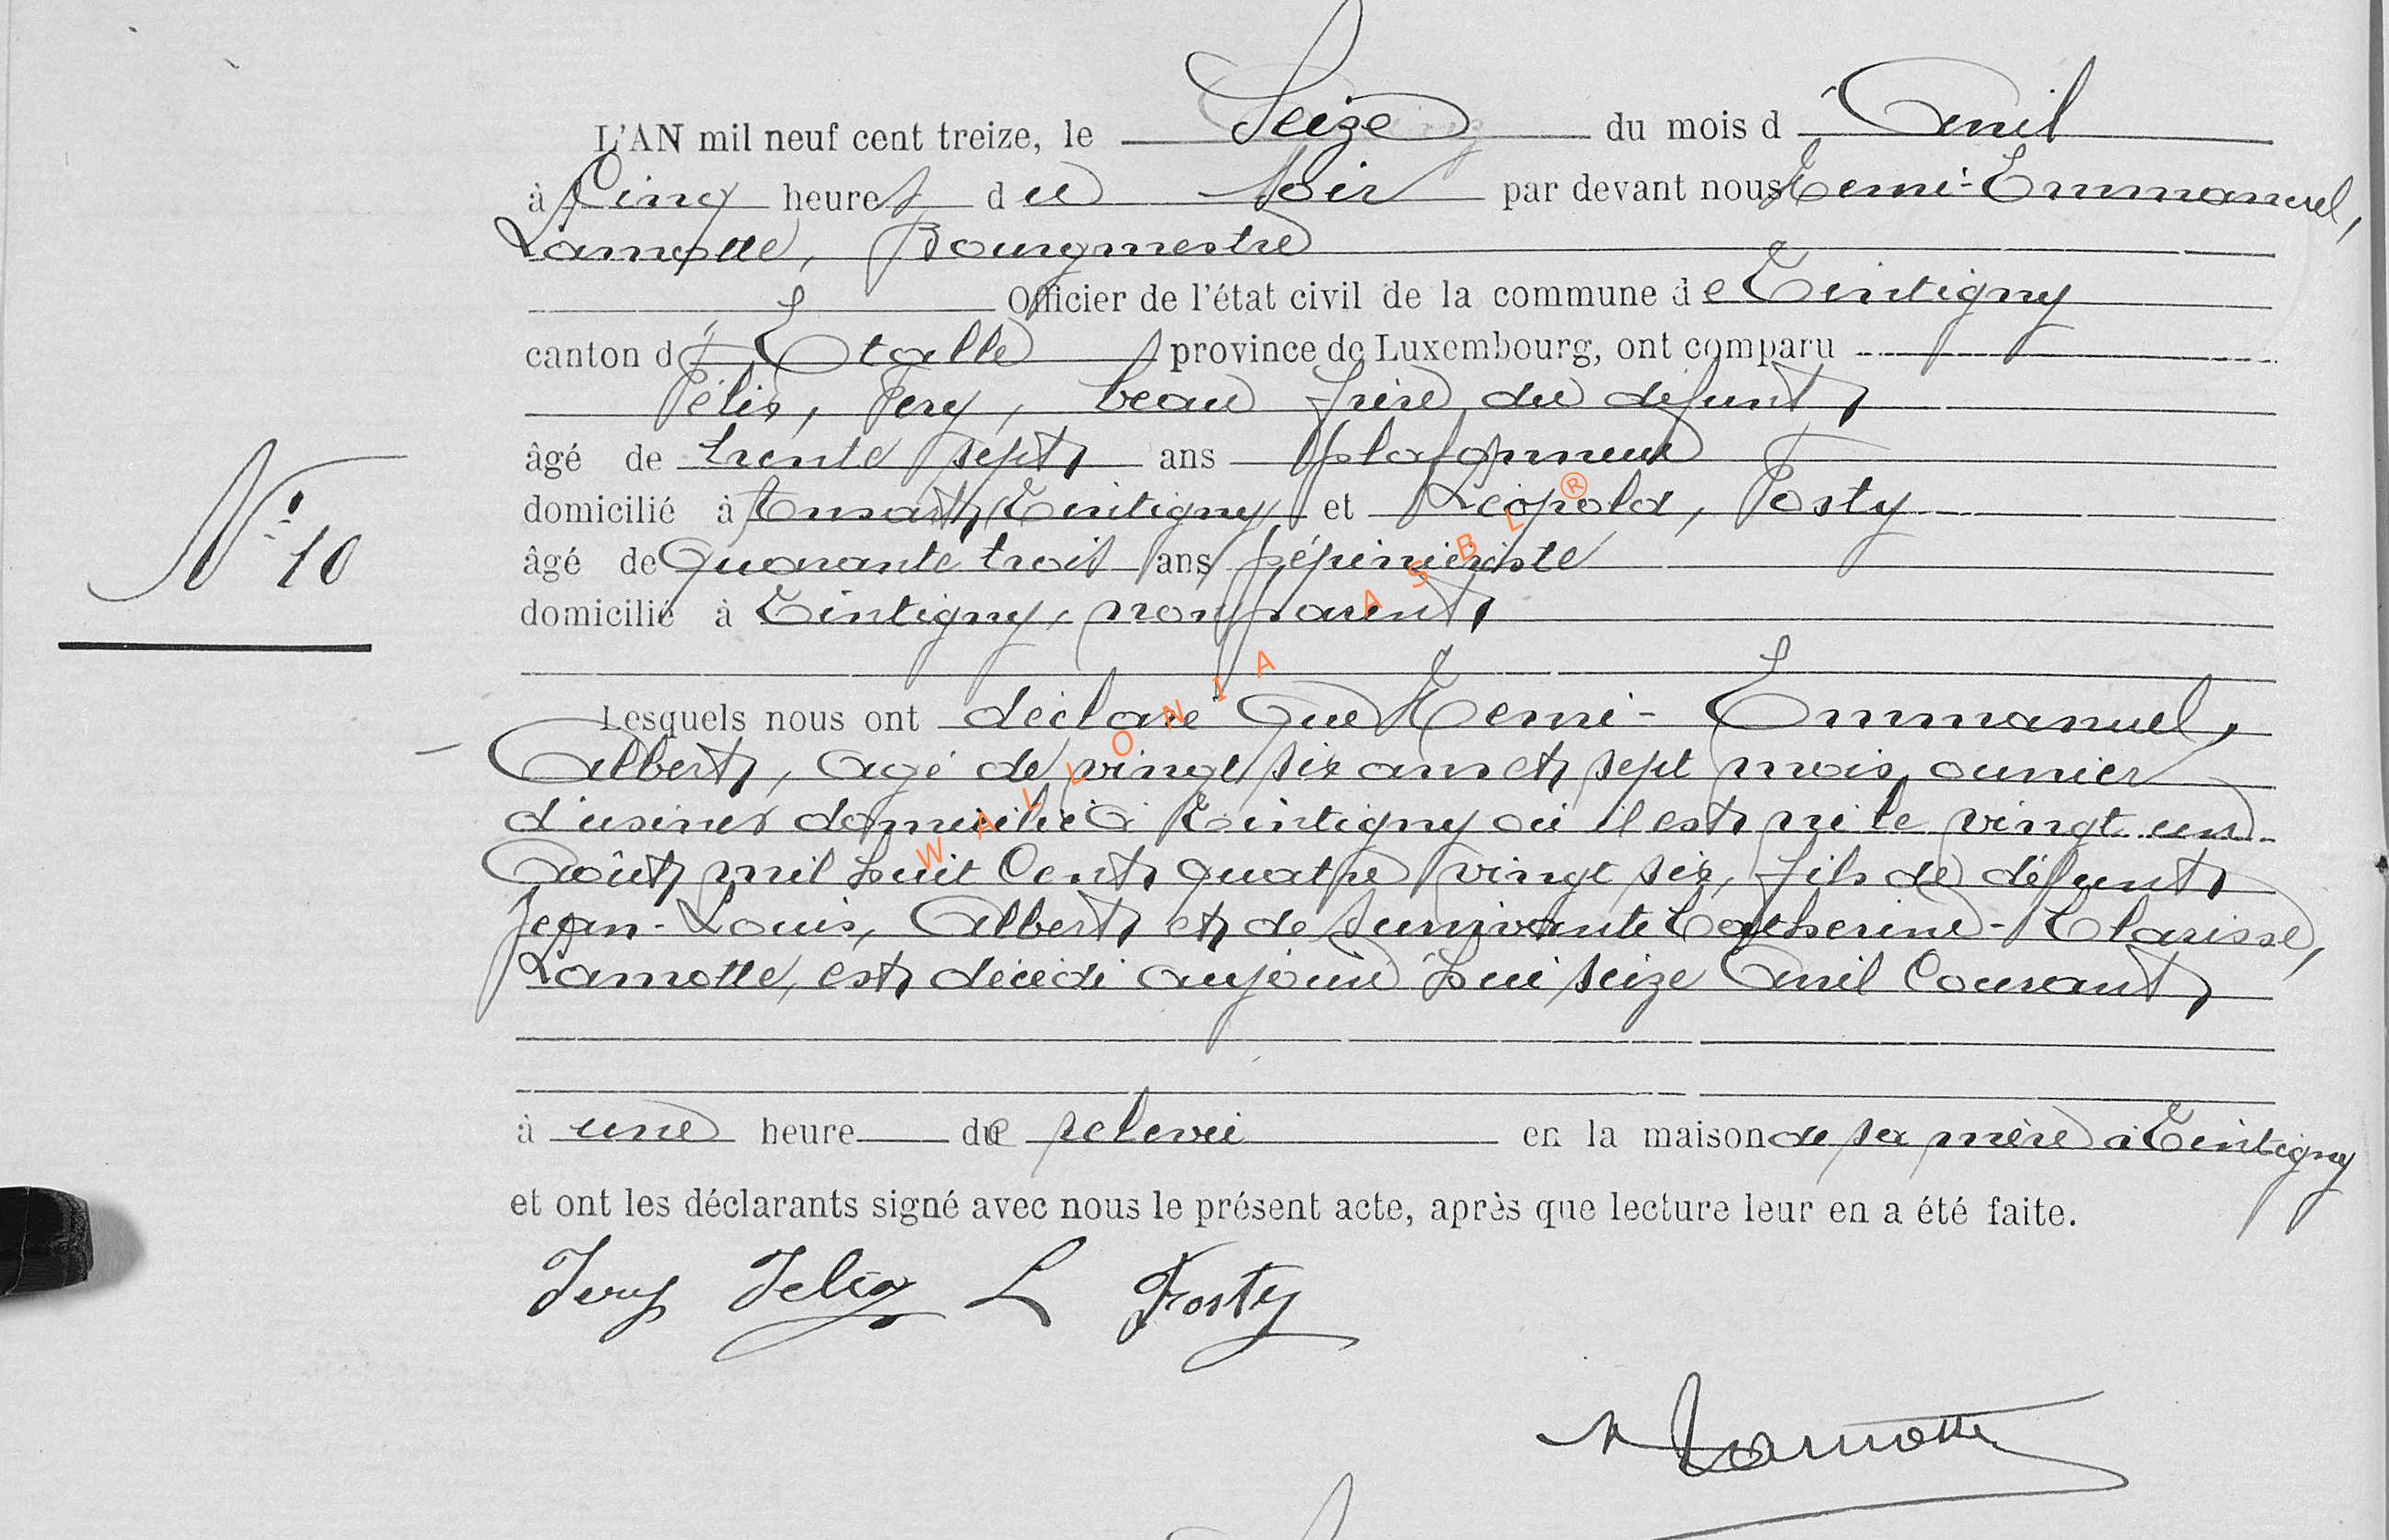 L'AN mil neuf cent treize, le Seize du mois d'Avril
à Cinq heures du soir par devant nous Remi-Emmanuel,
Lamotte, Bourgmestre
Officier de l'état civil de la commune de Tintigny
canton d'Etalle province de Luxembourg, ont comparu
Félix, Fery, beau frère du défunt
âgé de trente sept ans plafonneur
domicilié à Ansart, Tintigny et Léopold, Fosty
N° 10
âgé de quarante trois ans pépiniériste
domicilié à Tintigny, non parent
Lesquels nous ont déclaré que Remi-Emmanuel,
Albert, agé de vingt six ans et sept mois, ouvrier
d'usines domicilié à Tintigny où il est né le vingt un
Août mil huit Cent quatre vingt six, fils de défunt
Jean-Louis, Albert et de survivante Catherine-Clarisse,
Lamotte, est décédé aujourd'hui seize Avril Courant
à une heure de relevée en la maison de sa mère à Tintigny
et ont les déclarants signé avec nous le présent acte, après que lecture leur en a été faite.
Fery Felix L Fosty
R Lamotte
WALLONIA ASBL ®